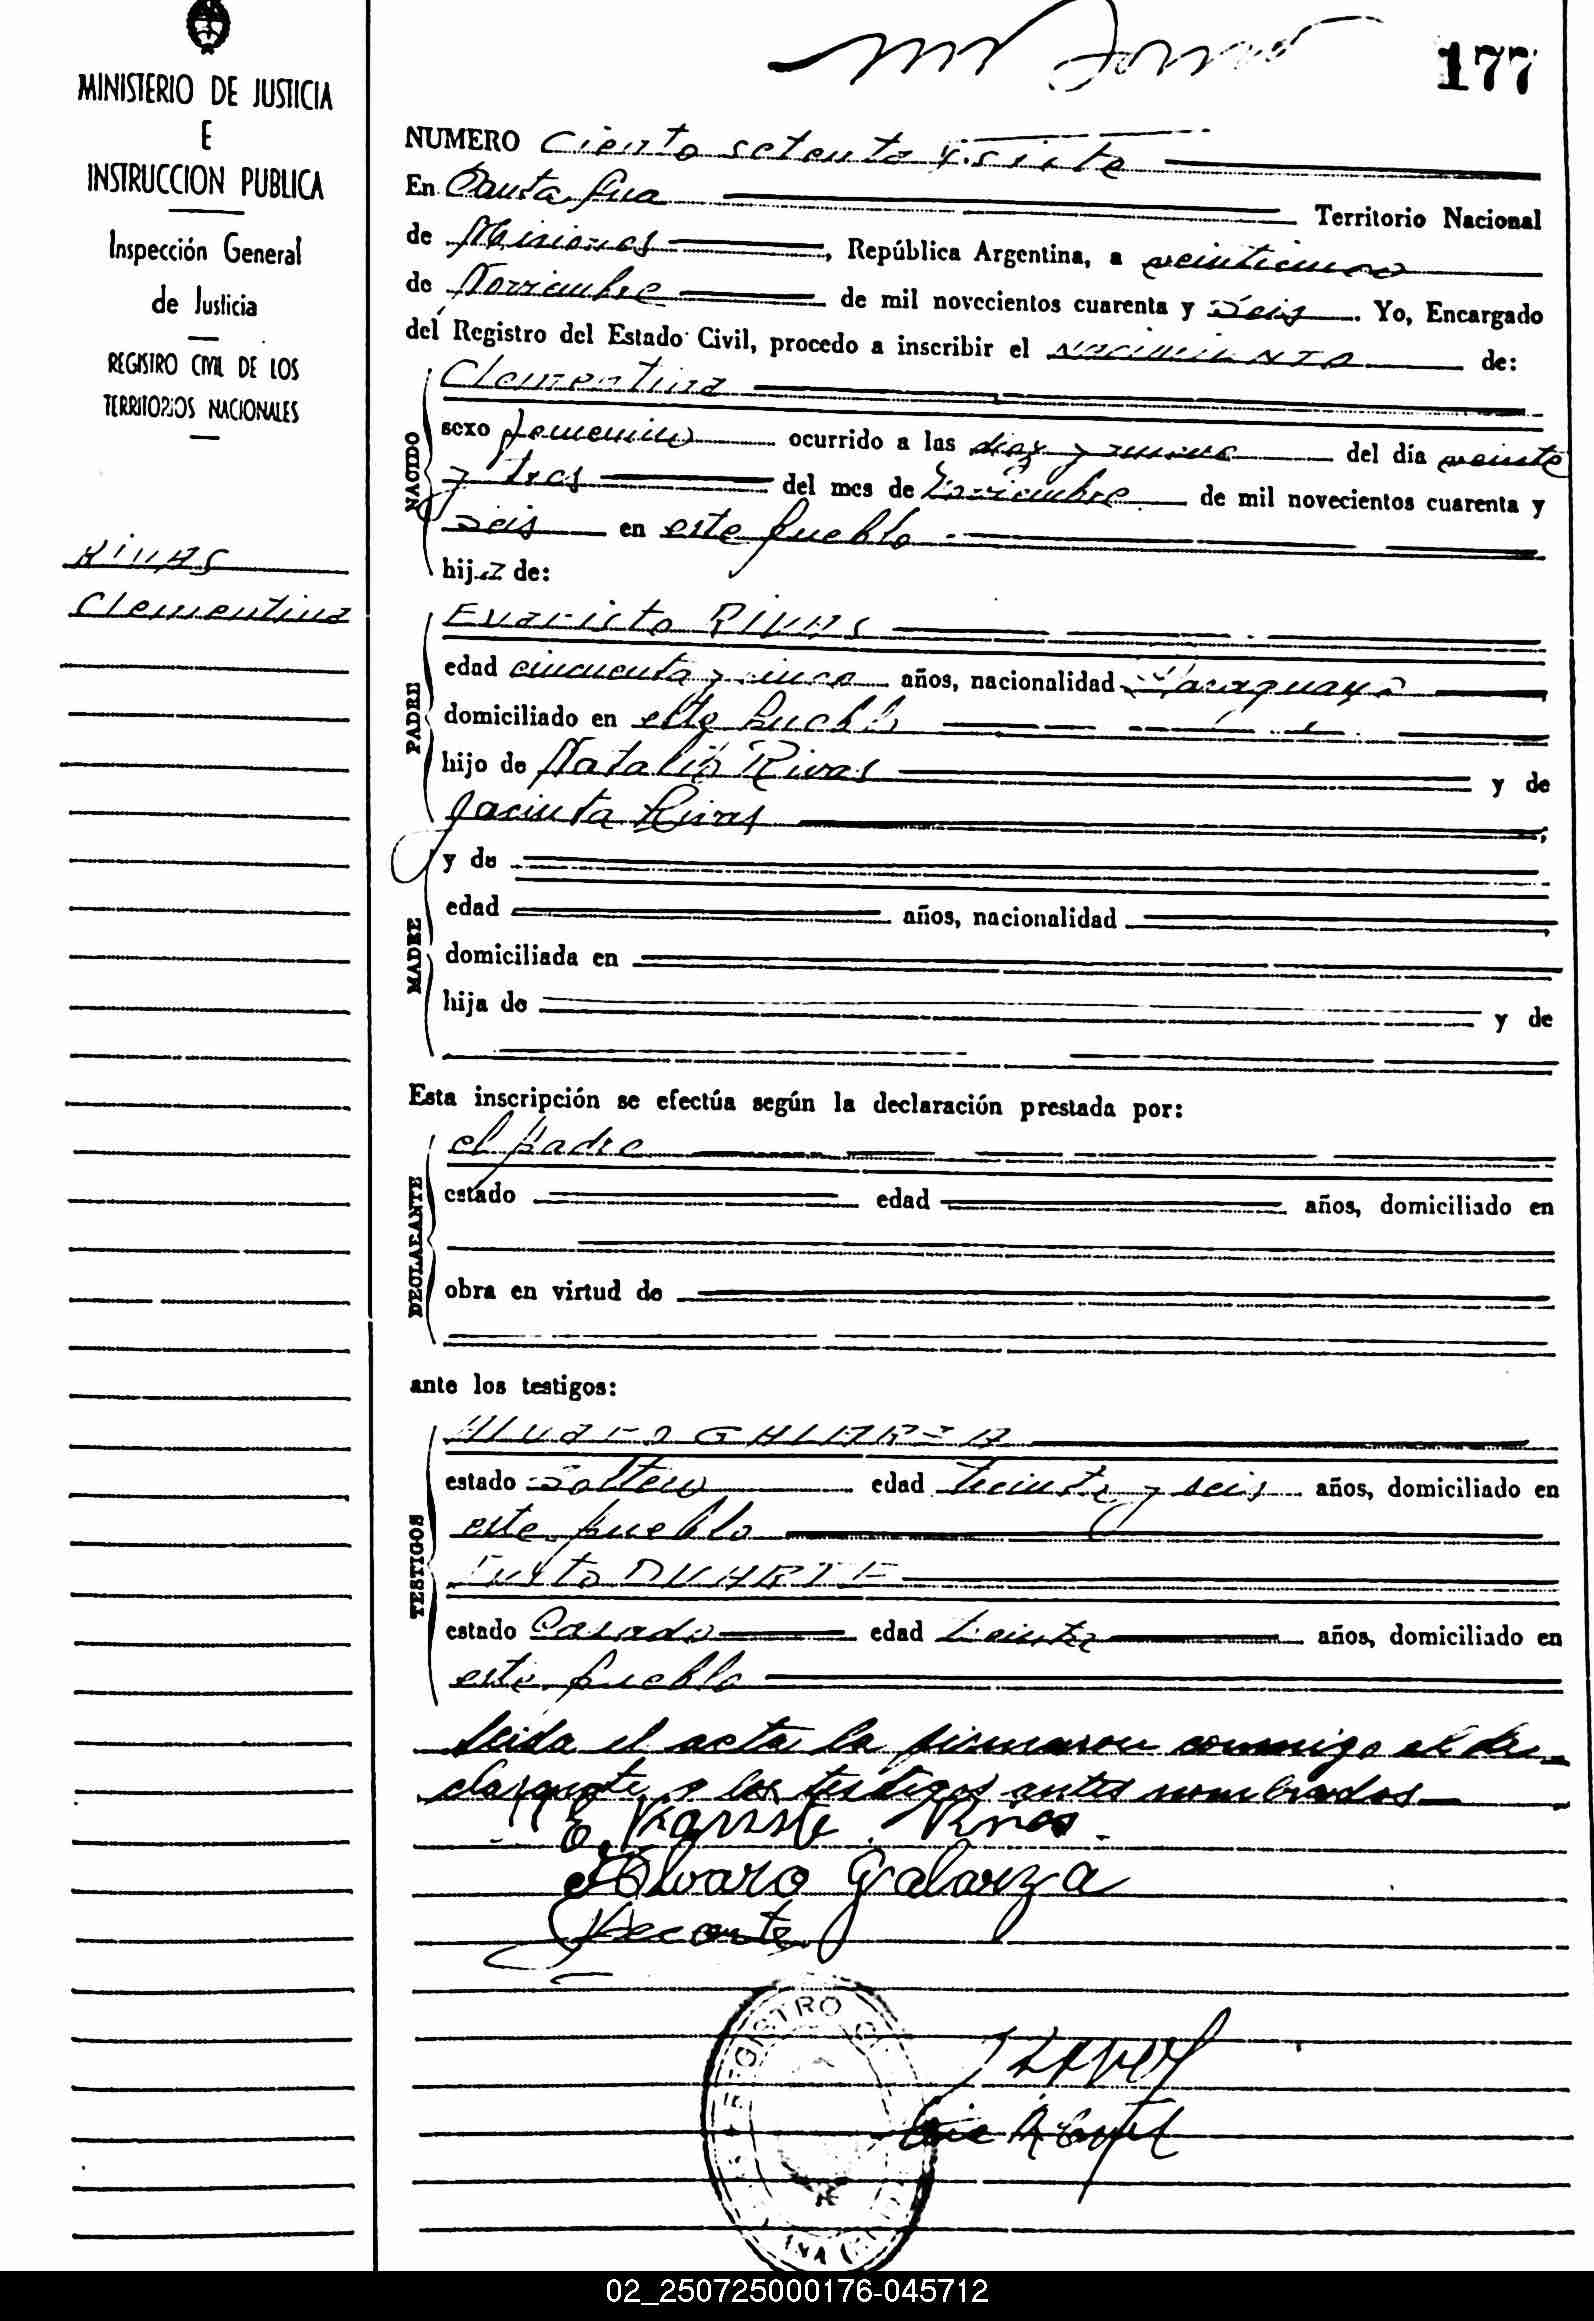 177
MINISTERIO DE JUSTICIA
E
INSTRUCCION PUBLICA
Inspección General
de Justicia
REGISTRO CIVIL DE LOS
TERRITORIOS NACIONALES
RIVAS
Clementina
NUMERO Ciento setenta y siete
En Santa Ana Territorio Nacional
de Misiones, República Argentina, a veinticinco
de Noviembre de mil novecientos cuarenta y Seis. Yo, Encargado
del Registro del Estado Civil, procedo a inscribir el NACIMIENTO de:
NACIDO
Clementina
sexo femenino ocurrido a las diez y nueve del día veinte
y tres del mes de Noviembre de mil novecientos cuarenta y
Seis en este pueblo
hija de:
PADRE
Evaristo RIVAS
edad cincuenta y cinco años, nacionalidad Paraguaya
domiciliado en este pueblo
hijo de Natalia Rivas y de
Jacinta Rivas;
MADRE
y de
edad años, nacionalidad
domiciliada en
hija de y de
Esta inscripción se efectúa según la declaración prestada por:
DECLARANTE
el padre
estado edad años, domiciliado en
obra en virtud de
ante los testigos:
TESTIGOS
Alvaro GALARZA
estado Soltero edad treinta y seis años, domiciliado en
este pueblo
Justo DUARTE
estado Casado edad treinta años, domiciliado en
este pueblo
Leida el acta la firmaron conmigo el de-
clarante y los testigos antes nombrados
Evaristo Rivas
Alvaro Galarza
REGISTRO
02_250725000176-045712